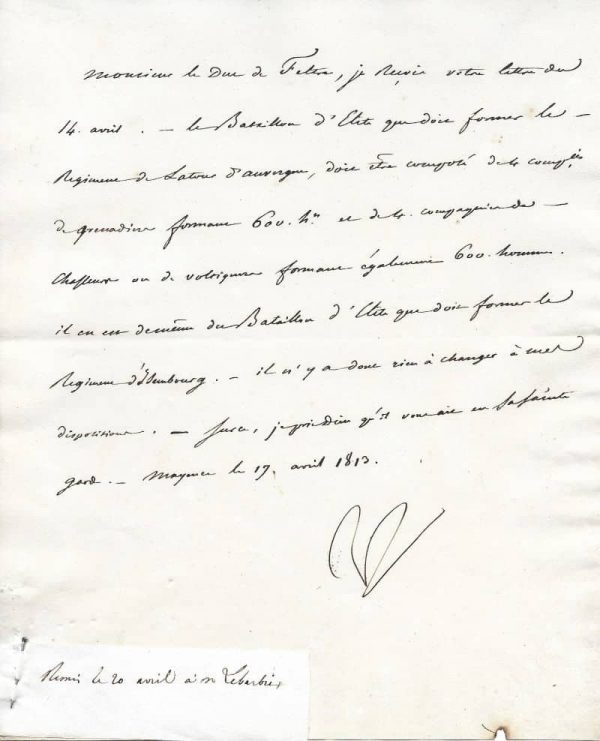 Monsieur le Duc de Feltre, je reçois votre lettre du
14. avril . — le Bataillon d'Elite que doit former le —
Regiment de Latour d'auvergne, doit être composé de 4 comp.ies
de grenadiers formant 600. h.es et de 4. compagnies de —
Chasseurs ou de voltigeurs formant également 600. hommes.
il en est de même du Bataillon d'Elite que doit former le
Regiment d'Isembourg. — il n'y a donc rien à changer à mes
dispositions. — Sur ce, je prie Dieu qu'il vous ait en sa sainte
garde. — Mayence le 19. avril 1813.
Remis le 20 avril à m Lebarbier